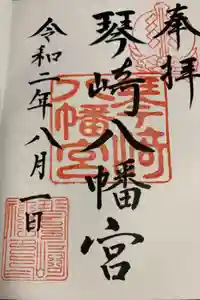 奉拝
琴崎八幡宮
令和二年八月一日
琴崎八幡宮